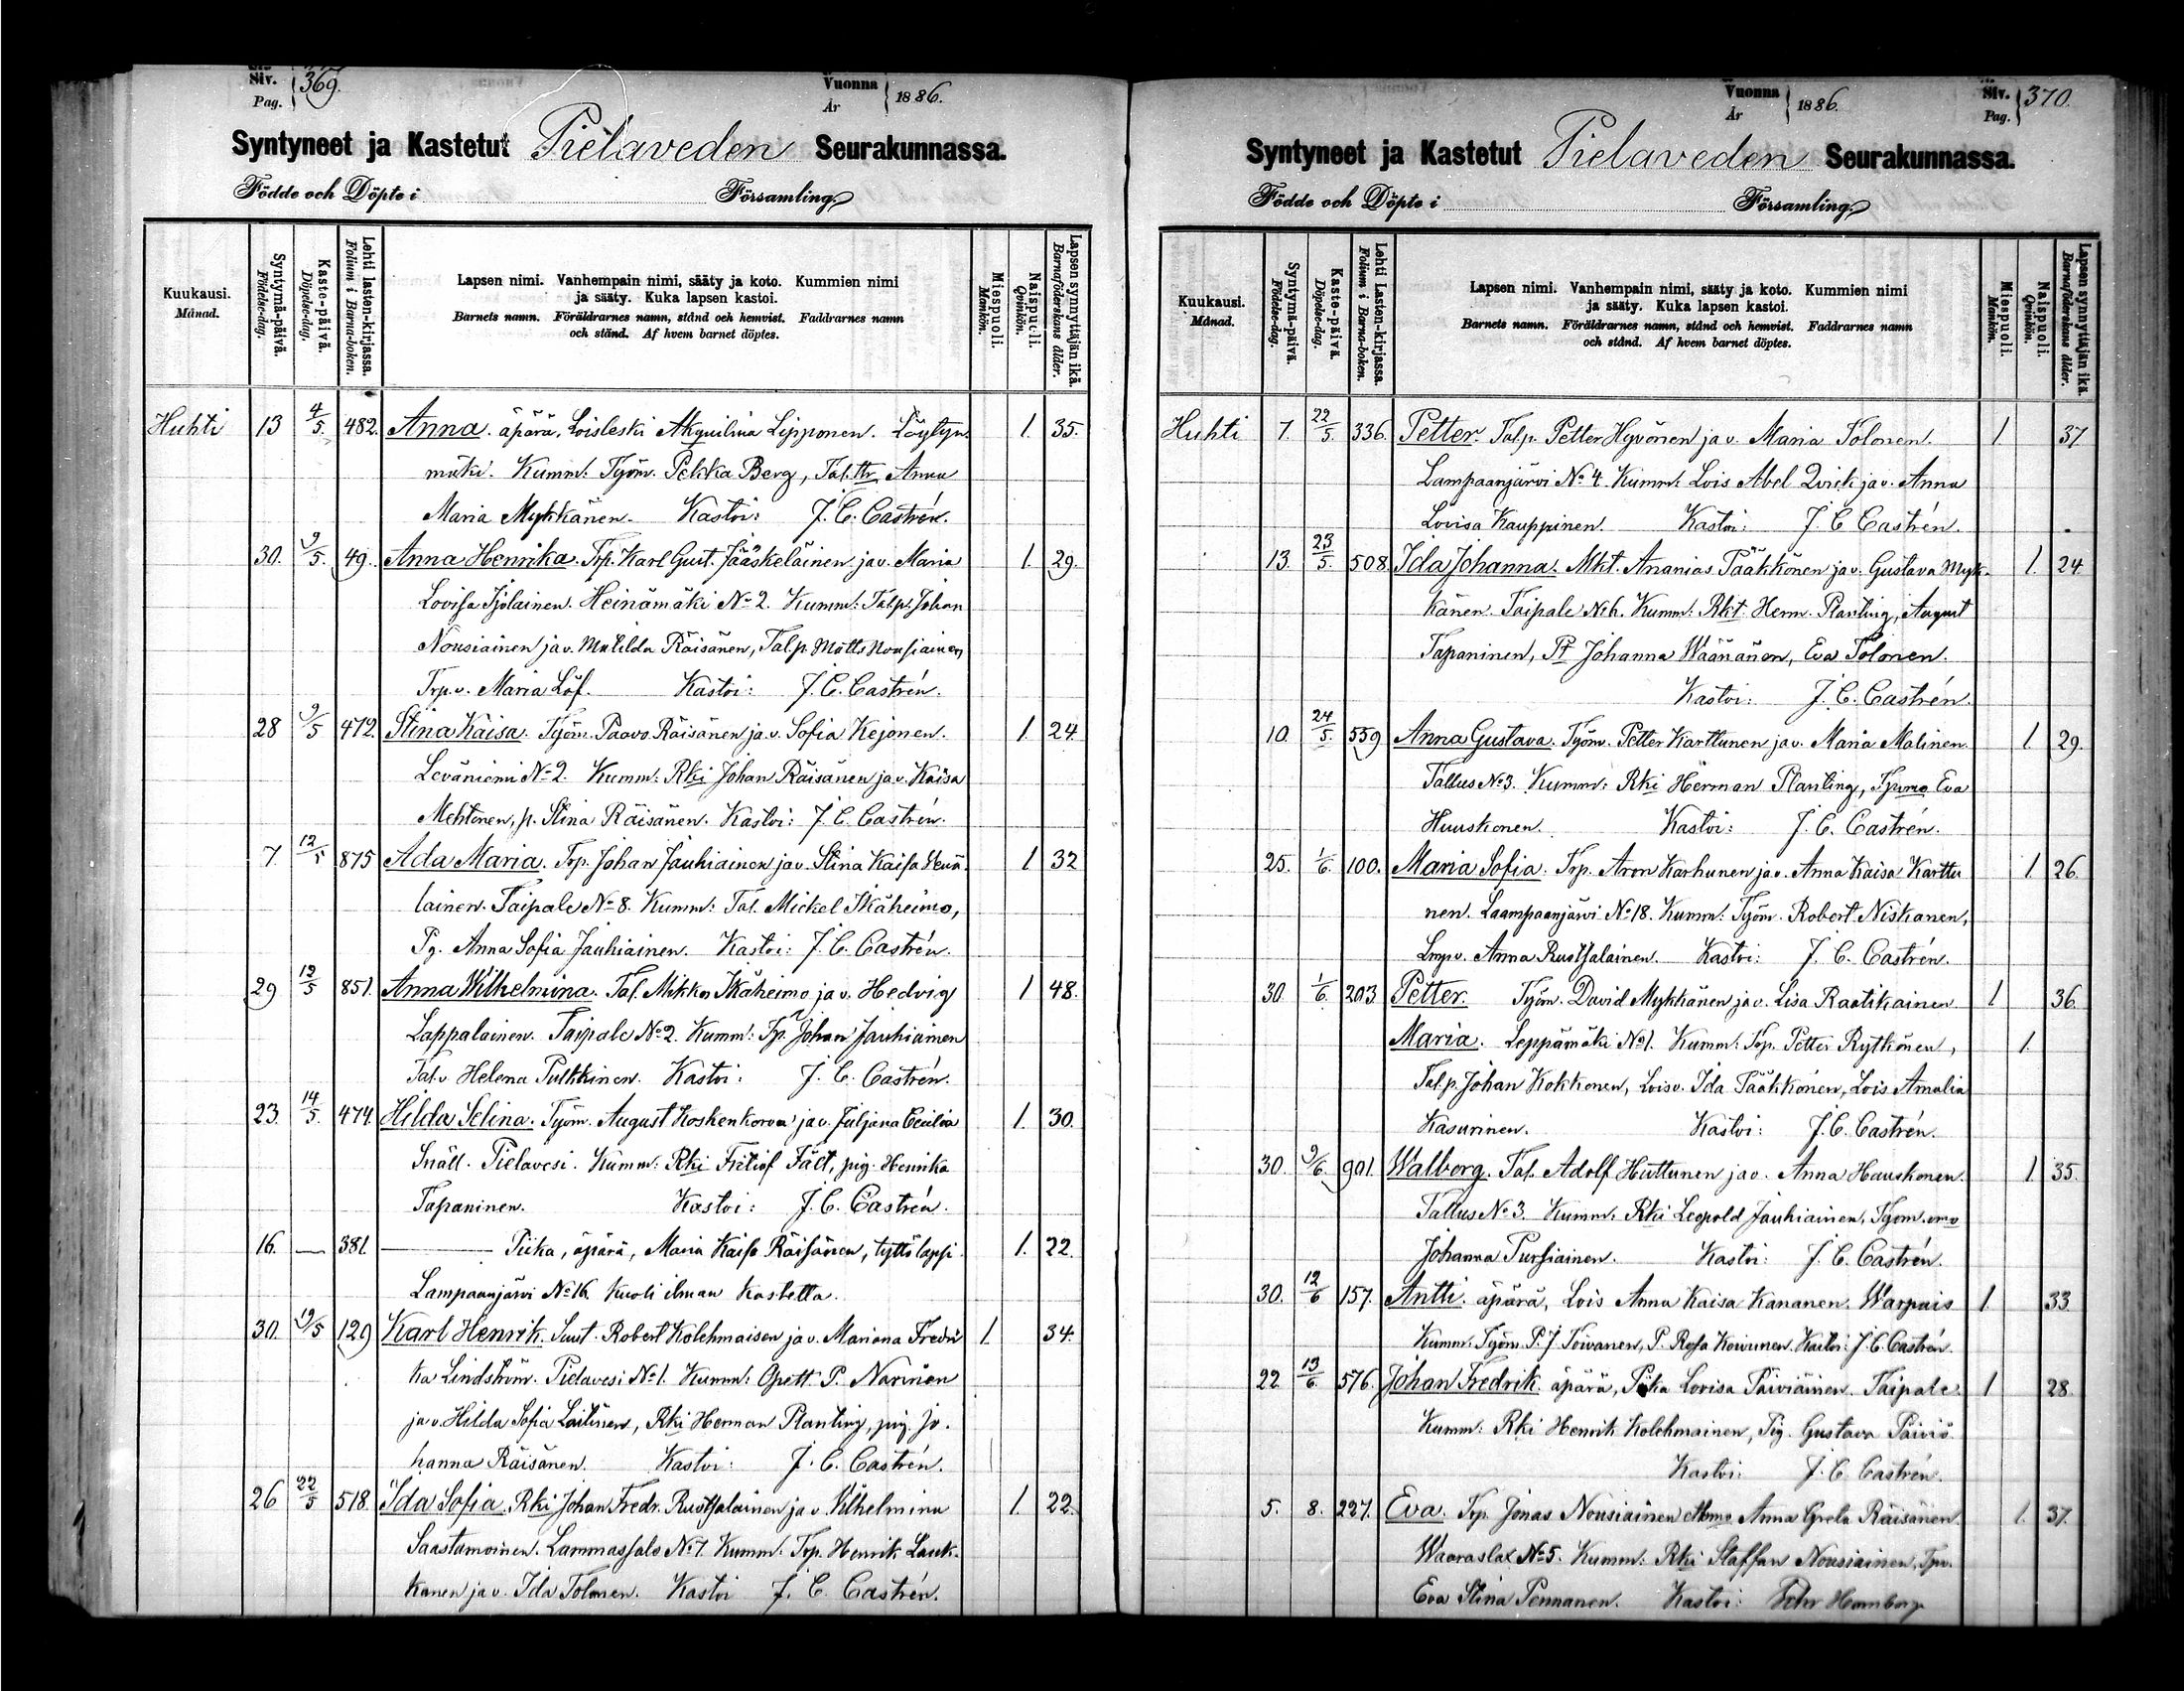 Siv. Pag. 369.
Vuonna År 1886.
Syntyneet ja Kastetut Pielaveden Seurakunnassa.
Födde och Döpte i Församling
Kuukausi. Månad.
Syntymä-päivä. Födelse-dag.
Kaste-päivä. Döpelse-dag.
Lehti lasten-kirjassa. Folium i Barna-boken.
Lapsen nimi. Vanhempain nimi, sääty ja koto. Kummien nimi
ja sääty. Kuka lapsen kastoi.
Barnets namn. Föräldrarnes namn, stånd och hemvist. Faddrarnes namn
och stånd. Af hvem barnet döptes.
Miespuoli. Mankön.
Naispuoli. Qvinkön.
Lapsen synnyttäjän ikä. Barnaföderskans ålder.
Huhti 13 4/5. 482. Anna. äpärä, Loisleski Akquilina Lipponen. Löytyn- 1. 35.
mäki. Kumm: Työm. Pekka Berg, Tal. ttr Anna
Maria Mykkänen. Kastoi: J. C. Castrén.
30. 9/5. 49. Anna Henrika. Trp. Karl Gust. Jääskeläinen ja v. Maria 1. 29.
Lovisa Heinämäki No 2. Kumm: Talp. Johan
Nousiainen ja v. Matilda Räisänen, Talp. Matts Nousiainen
Trp. v. Maria Löf. Kastoi: J. C. Castrén.
28 9/5 472. Stina Kaisa. Työm. Paavo Räisänen ja v. Sofia Kejonen. 1. 24.
Leväniemi No 2. Kumm: Rki Johan Räisänen ja v. Kaisa
Mehtonen, p. Stina Räisänen. Kastoi: J. C. Castrén.
7. 12/5 875 Ada Maria. Trp. Johan Jauhiainen ja v. Stina Kaisa Venä- 1 32
läinen. Taipale No 8. Kumm: Tal. Mickel Ikäheimo,
Pg. Anna Sofia Jauhiainen. Kastoi: J. C. Castrén.
29 13/5 851. Anna Wilhelmina. Tal. Mikko Ikäheimo ja v. Hedvig 1 48.
Lappalainen. Taipale No 2. Kumm: Tp. Johan Jauhiainen
Tal. v. Helena Pulkkinen. Kastoi: J. C. Castrén.
23. 14/5. 474. Hilda Selina. Työm. August Koskenkorva ja v. Juljana Cecilia 1. 30.
Snäll. Pielavesi. Kumm: Rki Fritiof Fält, pig. Henrika
Tapaninen. Kastoi: J. C. Castrén.
16. — 381. — Piika, äpärä, Maria Kaisa Räisänen, tyttölapsi 1. 22.
Lampaanjärvi No 16. Kuoli ilman kastetta.
30. 19/5 129 Karl Henrik. Suut. Robert Kolehmaisen ja v. Mariana Fredri- 1. 34.
ka Lindström. Pielavesi No 1. Kumm: Opett. P. Narinen
ja v. Hilda Sofia Laitinen, Rki Herman Planting, pig. Jo-
hanna Räisänen. Kastoi: J. C. Castrén.
26 22/5 518. Ida Sofia. Rki Johan Fredr. Ruotsalainen ja v. Vilhelmina 1. 22.
Saastamoinen. Lammassalo No 7. Kumm: Trp. Henrik Lauk-
kanen ja v. Ida Tolonen. Kastoi J. C. Castrén.
Vuonna År 1886.
Siv. Pag. 370.
Syntyneet ja Kastetut Pielaveden Seurakunnassa.
Födde och Döpte i Församling
Kuukausi. Månad.
Syntymä-päivä. Födelse-dag.
Kaste-päivä. Döpelse-dag.
Lehti Lasten-kirjassa. Folium i Barna-boken.
Lapsen nimi. Vanhempain nimi, sääty ja koto. Kummien nimi
ja sääty. Kuka lapsen kastoi.
Barnets namn. Föräldrarnes namn, stånd och hemvist. Faddrarnes namn
och stånd. Af hvem barnet döptes.
Miespuoli. Mankön.
Naispuoli. Qvinkön.
Lapsen synnyttäjän ikä. Barnaföderskans ålder.
Huhti 7. 22/5. 336. Petter. Talp. Petter Hyvönen ja v. Maria Tolonen. 1 37
Lampaanjärvi No 4. Kumm: Lois Abel Qvick ja v. Anna
Lovisa Kauppinen. Kastoi: J. C. Castrén.
13. 23/5. 508. Ida Johanna. Mkt. Ananias Pääkkönen ja v. Gustava Myk- 1. 24.
känen. Taipale No 6. Kumm: Rkt. Herm. Planting, August
Tapaninen, Pt Johanna Wäänänen, Eva Tolonen.
Kastoi: J. C. Castrén.
10. 24/5. 559 Anna Gustava. Työm. Petter Karttunen ja v. Maria Malinen. 1. 29.
Tallus No 3. Kumm: Rki Herman Planting, Eva
Huuskonen. Kastoi: J. C. Castrén.
25. 1/6. 100. Maria Sofia. Trp. Aron Karhunen ja v. Anna Kaisa Karttu 1 26.
nen. Laampaanjärvi No 18. Kumm: Työm. Robert Niskanen,
Lmp v. Anna Ruotsalainen. Kastoi: J. C. Castrén.
30. 1/6. 203 Petter. Työm. David Mykkänen ja v. Lisa Raatikainen 1 36.
Maria. Leppämäki No 1. Kumm: Trp. Petter Rytkönen, 1.
Talp. Johan Kokkonen, Lois v. Ida Pääkkönen, Lois Amalia
Kasurinen. Kastoi: J. C. Castrén.
30. 9/6. 901. Walborg. Tal. Adolf Huttunen ja v. Anna Hauskonen. 1. 35.
Tallus No 3. Kumm: Rki Leopold Jauhiainen, Työm. emo
Johanna Pursiainen. Kastoi: J. C. Castrén.
30. 12/6 157. Antti. äpärä, Lois Anna Kaisa Kananen. Warpais 1. 33.
Kumm: Työm. P. J. Toivanen, P. Rosa Koivunen. Kastoi: J. C. Castrén
22 13/6. 576. Johan Fredrik. äpärä, Piika Lovisa Päiviäinen. Taipale 1 28.
Kumm: Rki Henrik Kolehmainen, Pig. Gustava Päiviö.
Kastoi: J. C. Castrén.
5. 8. 227. Eva. Trp. Jonas Nousiainen Anna Greta Räisänen. 1. 37.
Waaraslax No 5. Kumm: Rki Staffan Nousiainen, Tpv.
Eva Stina Pennanen. Kastoi: